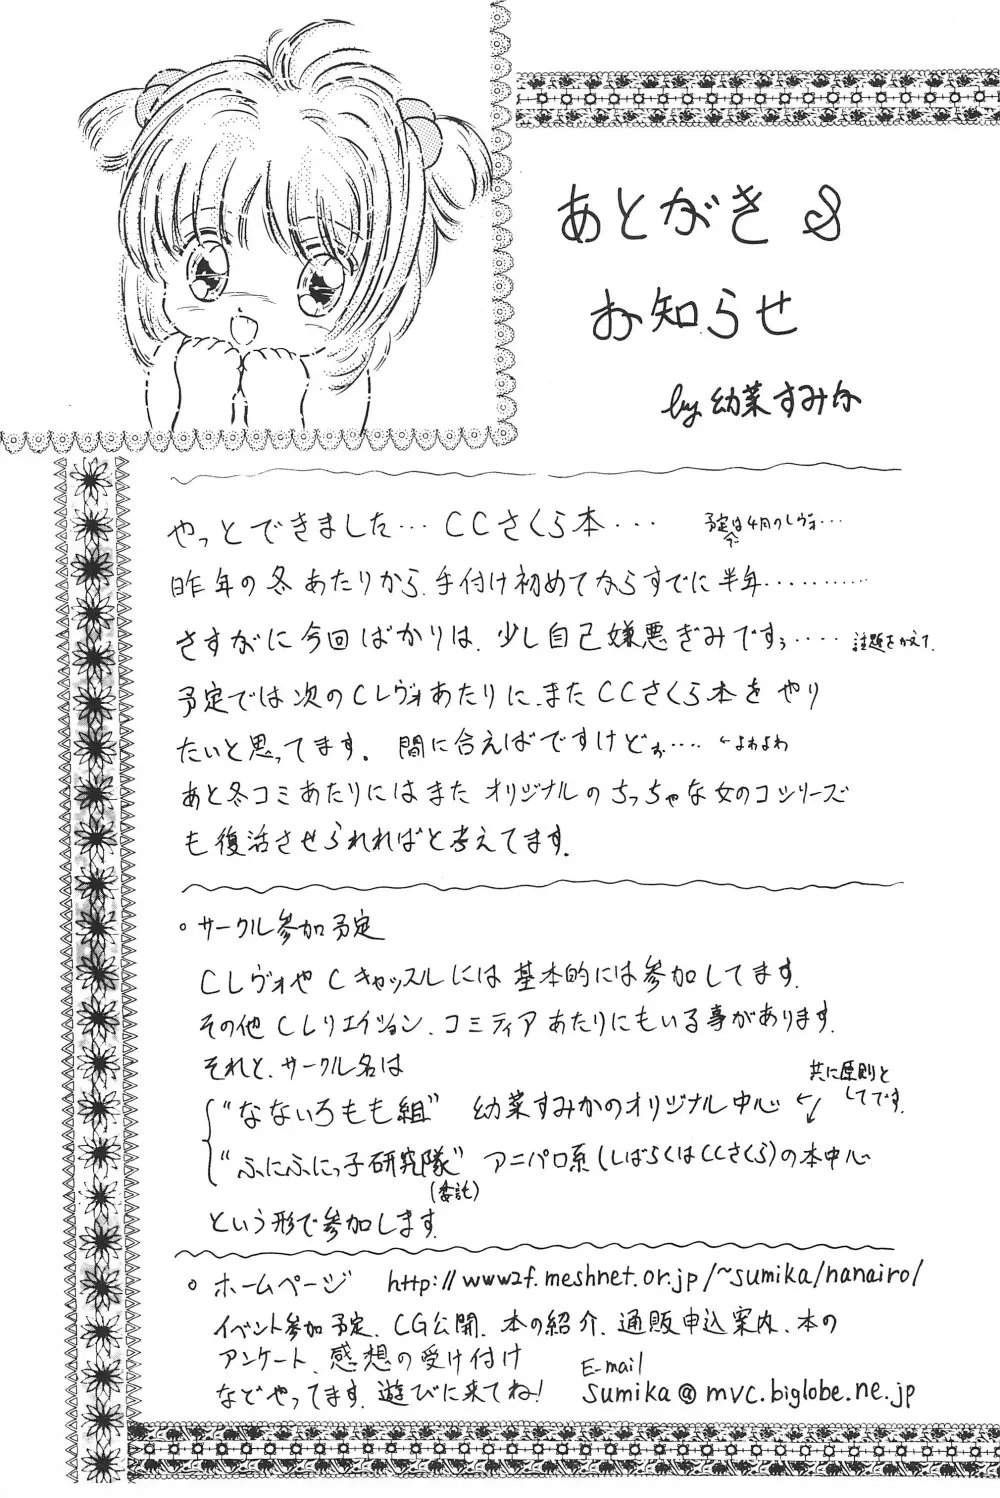 あとがき &
お知らせ
by 幼菜すみか
やっとできました… CCさくら本… 予定は4月のレヴォ…
昨年の冬あたりから、手付け初めてならすでに半年…………
さすがに今回ばかりは、少し自己嫌悪ぎみですぅ…… 話題をかえて、
予定では次のCレヴォあたりに、またCCさくら本をやり
たいと思ってます。間に合えばですけどぉ…… ←よわよわ
あと冬コミあたりにはまたオリジナルのちっちゃな女のコシリーズ
も復活させられればと考えてます。
○サークル参加予定
CレヴォやCキャッスルには基本的には参加してます。
その他Cレリエイション、コミティアあたりにもいる事があります。
それと、サークル名は
共に原則と
してです。
"なないろもも組" 幼菜すみかのオリジナル中心 ←
"ふにふにっ子研究隊" アニパロ系(しばらくはCCさくら)の本中心
(委託)
という形で参加します。
○ホームページ http://www2f.meshnet.or.jp/~sumika/nanairo/
イベント参加予定、CG公開、本の紹介、通販申込案内、本の
アンケート、感想の受け付け
などやってます。遊びに来てね!
E-mail
sumika@mvc.biglobe.ne.jp